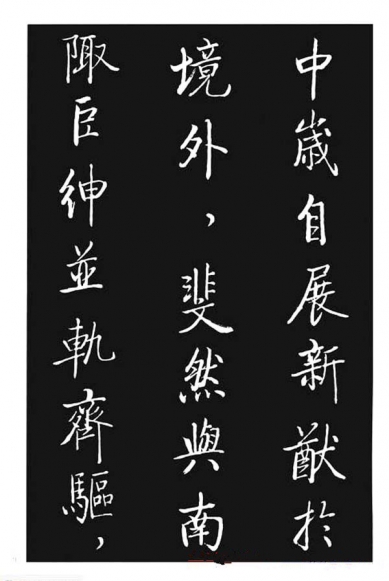 中歲自展新猷於
境外，斐然與南
陬臣紳並軌齊驅，